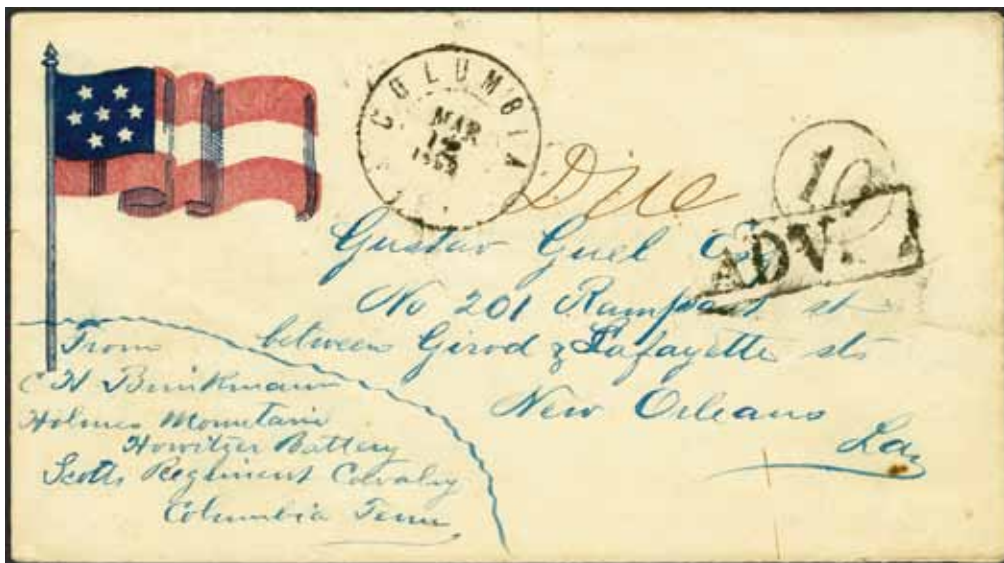 COLUMBIA
MAR
186
Due
10
ADV.
Gustav Guel
No 201 Rampart st
between Girod & Lafayette sts
New Orleans
La
From
C H Brinkmann
Holmes Mountain
Howitzer Battery
Scotts Regiment Cavalry
Columbia Tenn